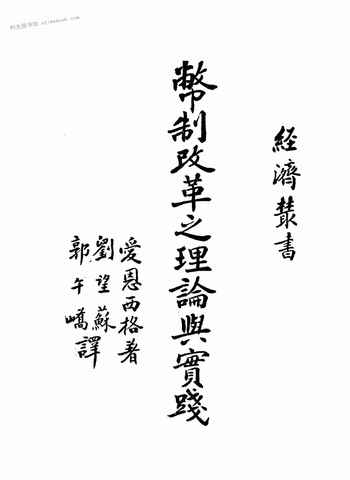 经濟叢書
幣制改革之理論與實踐
愛恩西格著
劉望蘇
郭午嶠譯